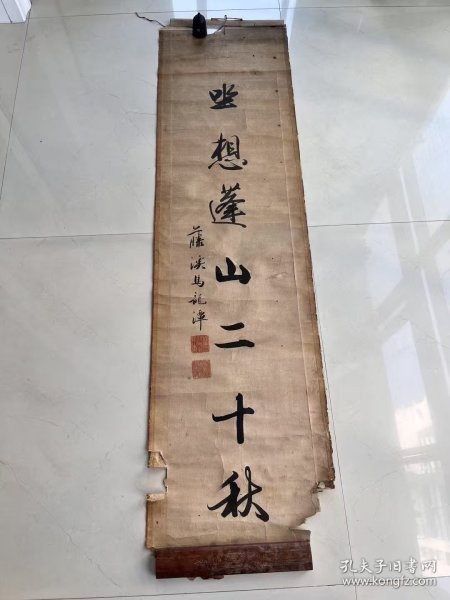 坐想蓬山二十秋
藤溪馬龍潭
孔夫子旧书网
www.kongfz.com